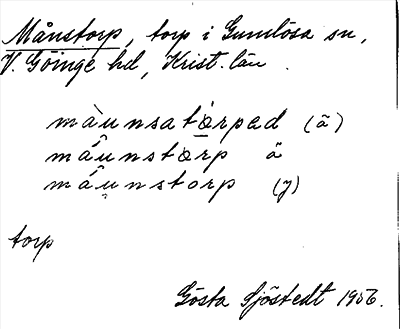 Månstorp, torp i Gumlösa sn,
V. Göinge hd, Krist. län.
màunsatòrped (ä)
mâunstòrp ä
mâunstorp (y)
torp
Gösta Sjöstedt 1956.